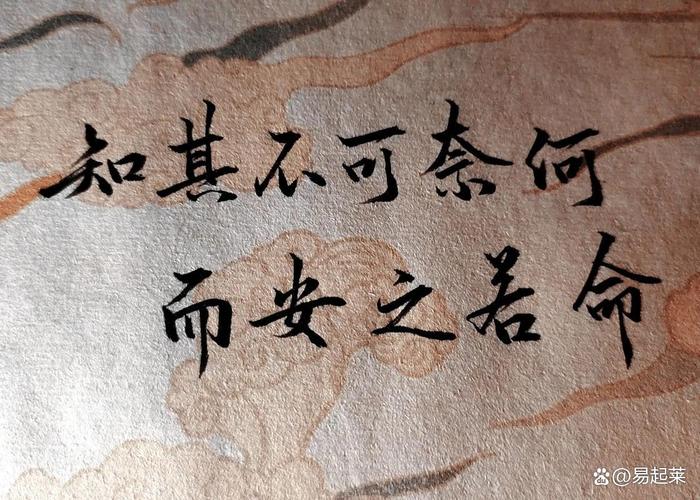 知其不可奈何
而安之若命
@易起莱